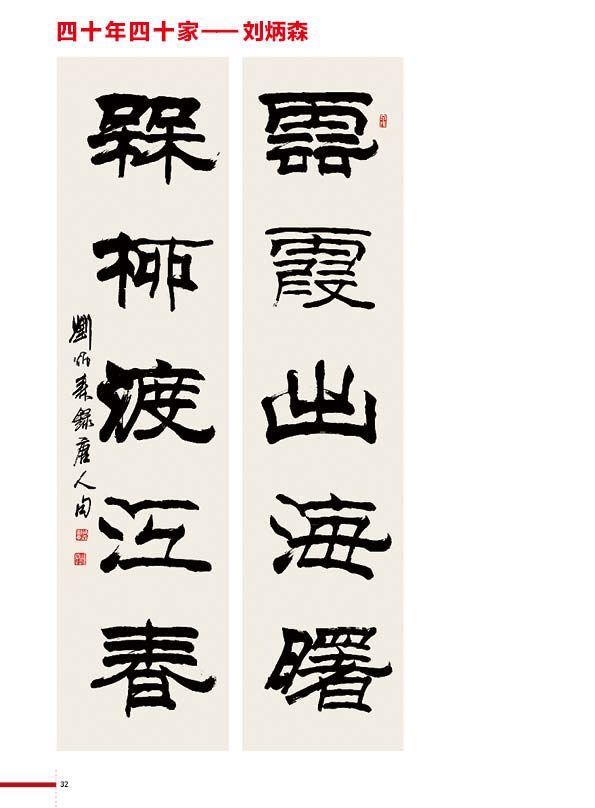 四十年四十家——刘炳森
雲霞出海曙
槑柳渡江春
劉炳森錄唐人句
32